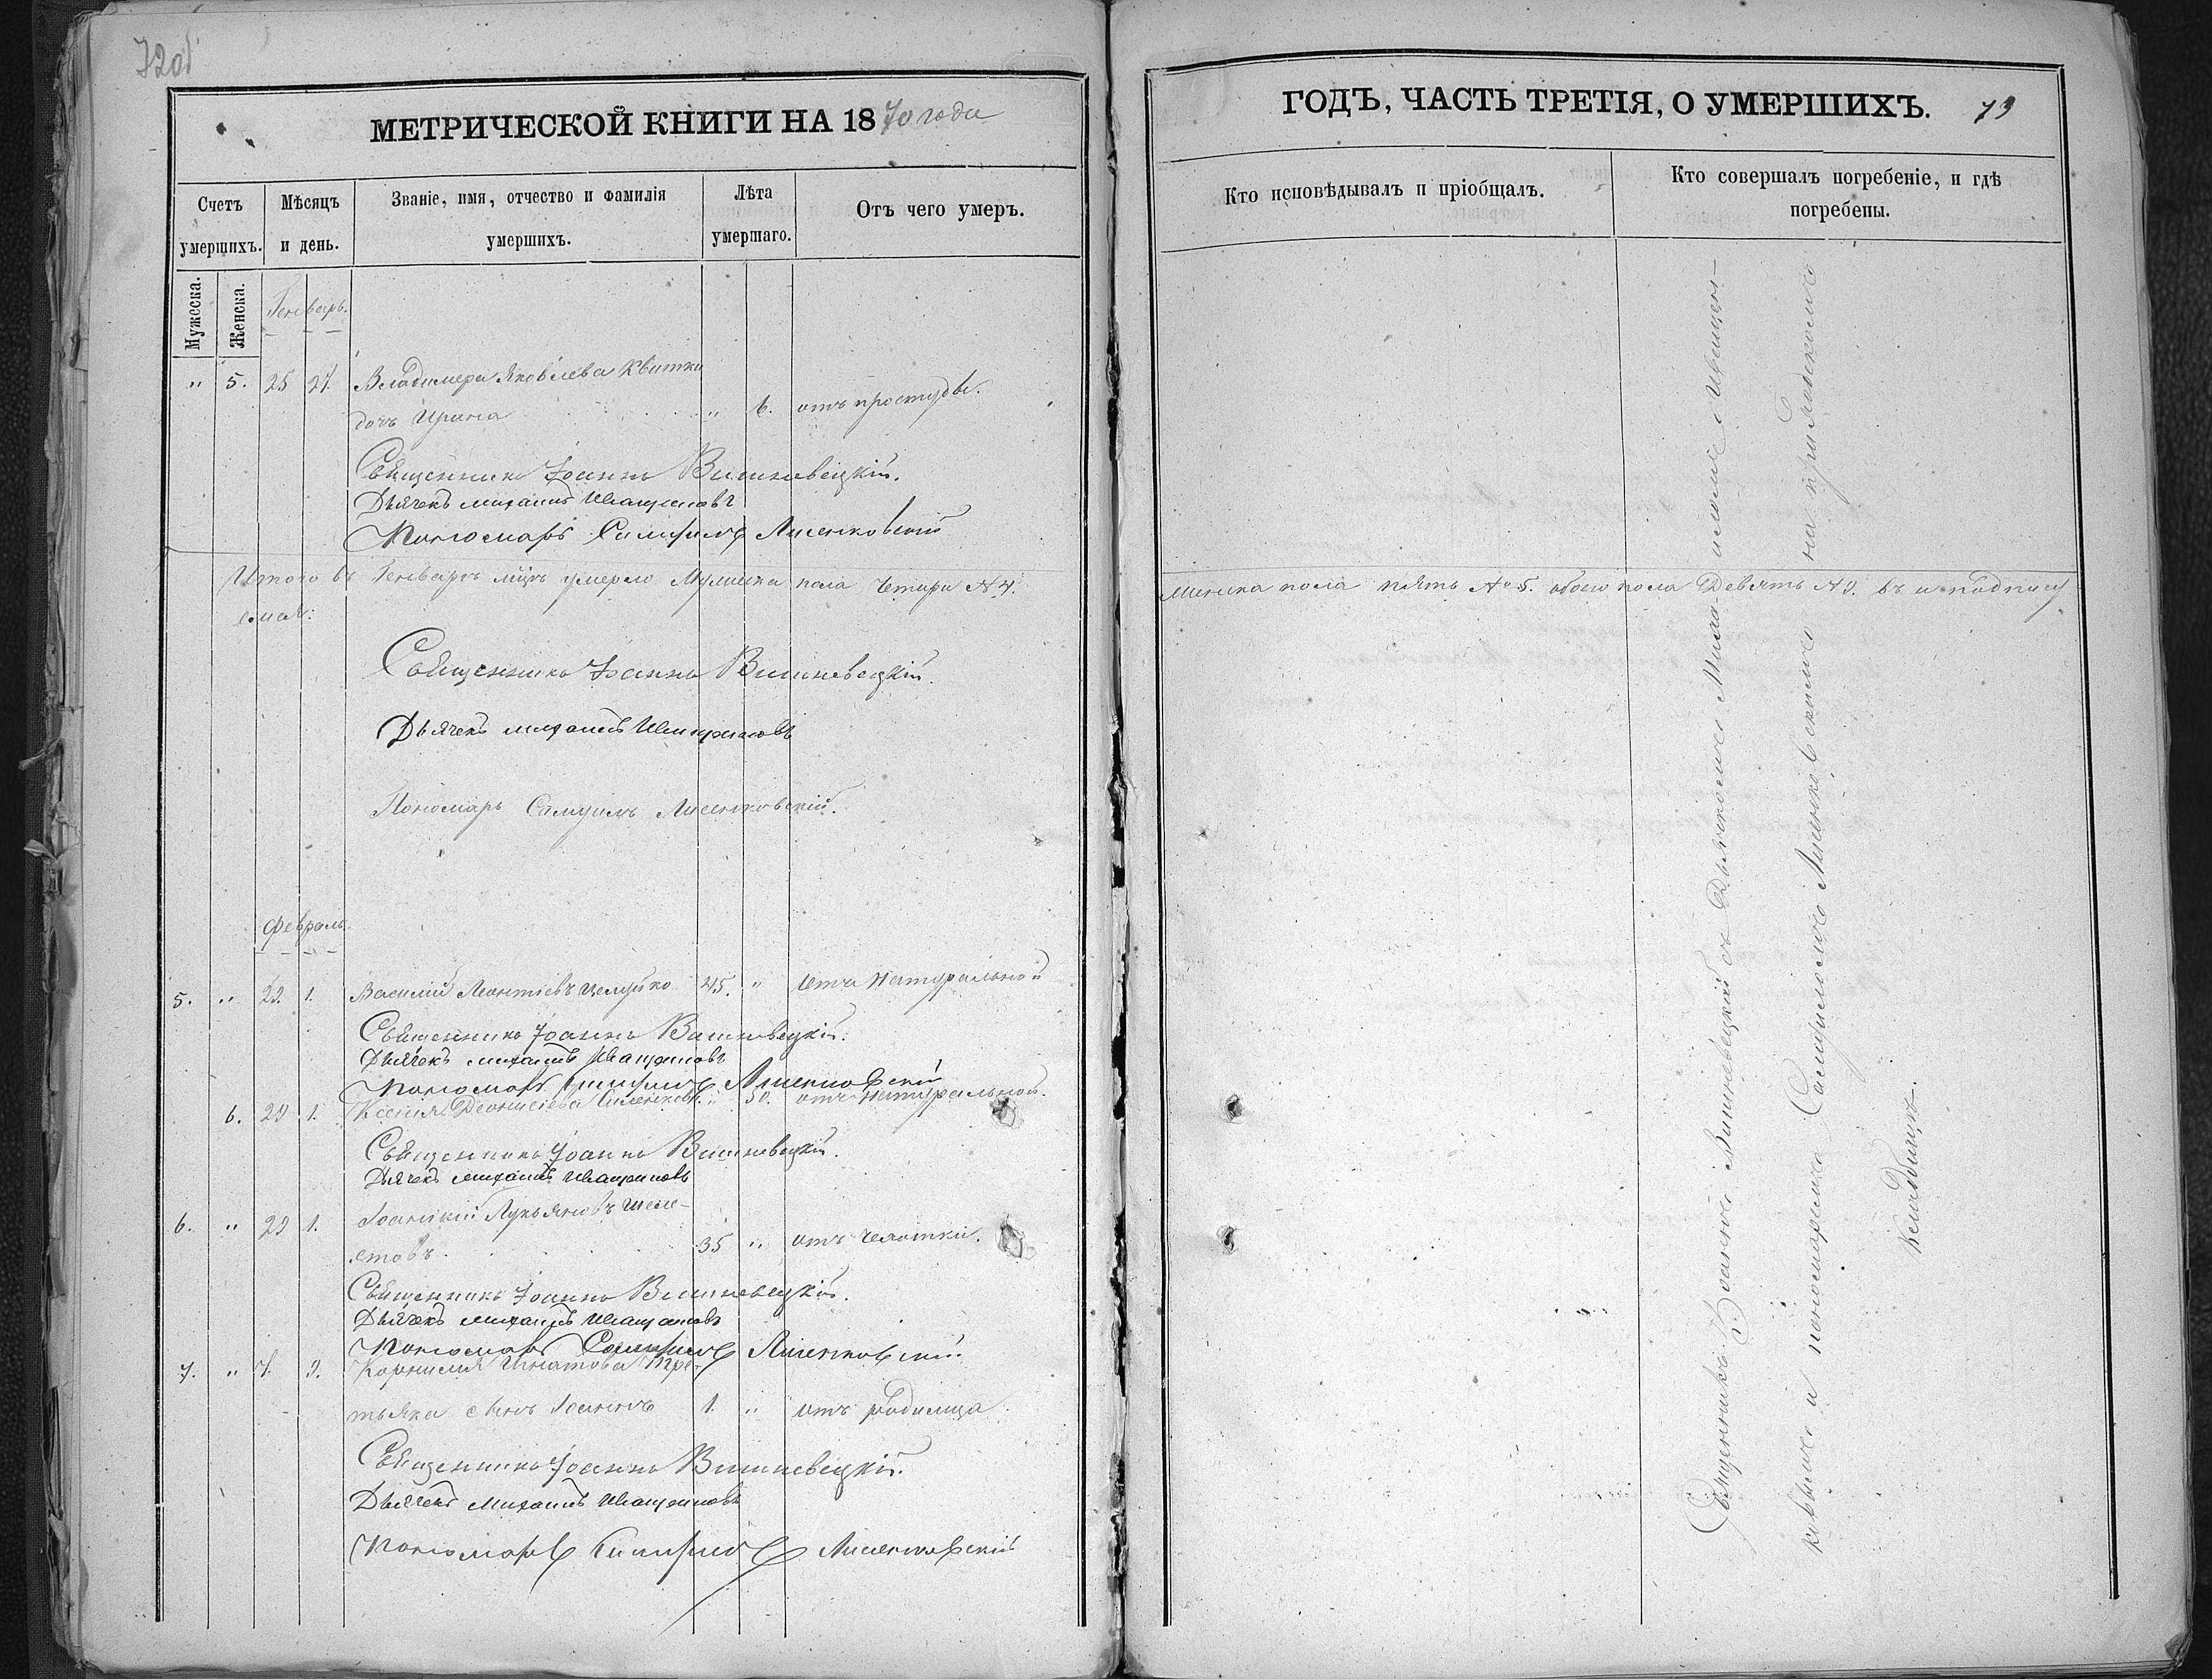 72об
МЕТРИЧЕСКОЙ КНИГИ НА 1870 года
Счетъ умершихъ.
Мѣсяцъ и день.
Званіе, имя, отчество и фамилія умершихъ.
Лѣта умершаго.
Отъ чего умеръ.
Мужеска.
Женска.
Генварь.
" 5. 25 27. Владимера Яковлева Квитки
дочь Ирина " 6. отъ простуды.
Священникъ Іоаннъ Вишневецкій.
Дьячекъ Михаилъ
Пономарь Самуилъ Лисенковскій
Итого въ Генварѣ мцѣ умерло Мужеска пола Четыри № 4.
Священникъ Іоаннъ Вишневецкій.
Дьячекъ Михаилъ
Пономарь Самуилъ Лисенковскій.
Февраль.
5. " 29. 1. Василий Леонтіевъ Целуйко 45. " Отъ Натуральной
Священникъ Іоаннъ Вишневецкій.
Дьячекъ Михаилъ
Пономарь Самуилъ Лисенковскій
6. 29 1. Ксенія Деонисіева " 50. отъ Натуральной.
Священникъ Іоаннъ Вишневецкій.
Дьячекъ Михаилъ
6. " 29 1. Іоанникій Лукьяновъ Шеле-
стовъ 35 " отъ Чахотки.
Священникъ Іоаннъ Вишневецкій.
Дьячекъ Михаилъ
Пономарь Самуилъ Лисенковскій
7. " 7. 9. Корнилія Игнатова Тре-
тьяка сынъ Іоаннъ 1. " отъ родимца
Священникъ Іоаннъ Вишневецкій.
Дьячекъ Михаилъ
Пономарь Самуилъ Лисенковскій
ГОДЪ, ЧАСТЬ ТРЕТІЯ, О УМЕРШИХЪ. 73
Кто исповѣдывалъ и пріобщалъ.
Кто совершалъ погребеніе, и гдѣ
погребены.
Женска пола пять № 5. обоего пола Девять № 9. въ
Священникъ Іоаннъ Вишневецкій съ Дьячкомъ
и пономаремъ Самуиломъ Лисенковскимъ на приходскомъ
Кладбищѣ.